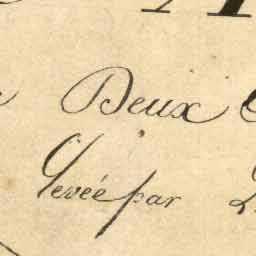 Deux
Levée par